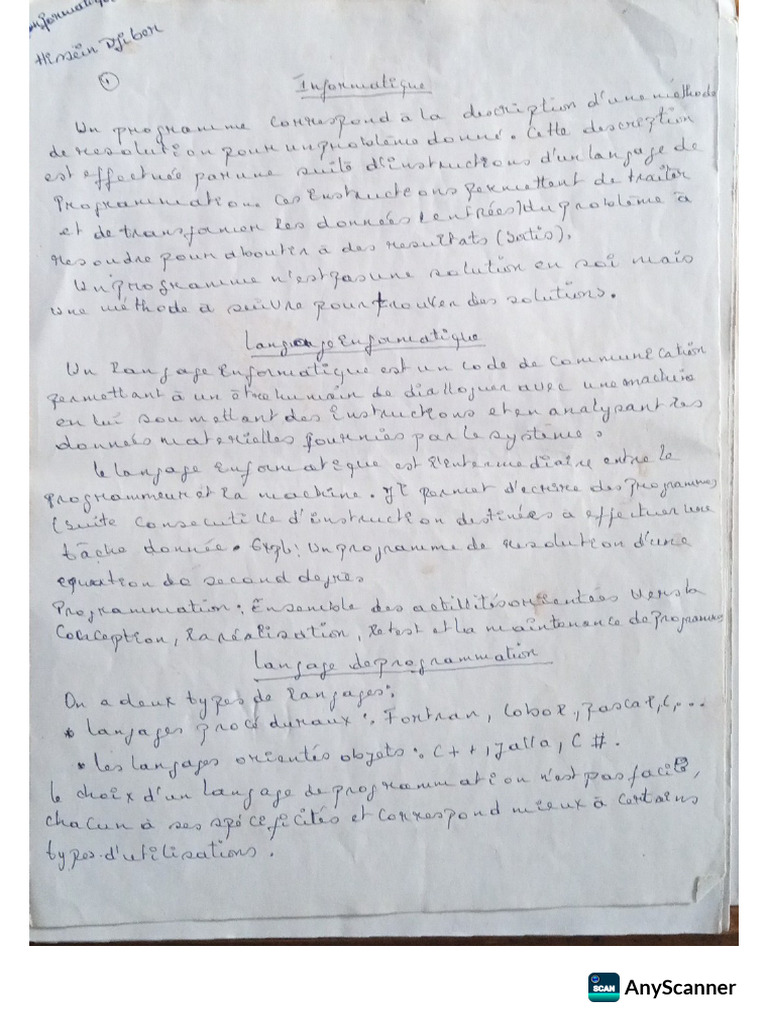 Informatique
Hissein Djiber
1
Informatique
Un programme correspond à la description d'une méthode
de resolution pour un problème donné. Cette description
est effectuée par une suite d'instructions d'un langage de
Programmation. Ces instructions permettent de traiter
et de transformer les données (entrées) du problème à
resoudre pour aboutir à des resultats (Sortis).
Un programme n'est pas une solution en soi mais
une méthode à suivre pour trouver des solutions.
Langage Informatique
Un langage Informatique est un code de communication
permettant à un être humain de dialloguer avec une machine
en lui soumettant des instructions et en analysant les
données materielles fournies par le système.
le langage informatique est l'intermediaire entre le
programmeur et la machine. Il permet d'ecrire des Programmes
(suite consecutive d'instruction destinées à effectuer une
tâche donnée. Expl: Un programme de resolution d'une
equation de second degres
Programmation: Ensemble des activités orientées vers la
Conception, la réalisation, le test et la maintenance de programmes
langage de programmation
On a deux types de langages:
* langages procéduraux: Fortran, Cobol, pascal, C, ...
• les langages orientés objets: C++, java, C#.
le choix d'un langage de programmation n'est pas facile,
chacun à ses spécificités et correspond mieux à certains
types d'utilisations.
SCAN
AnyScanner